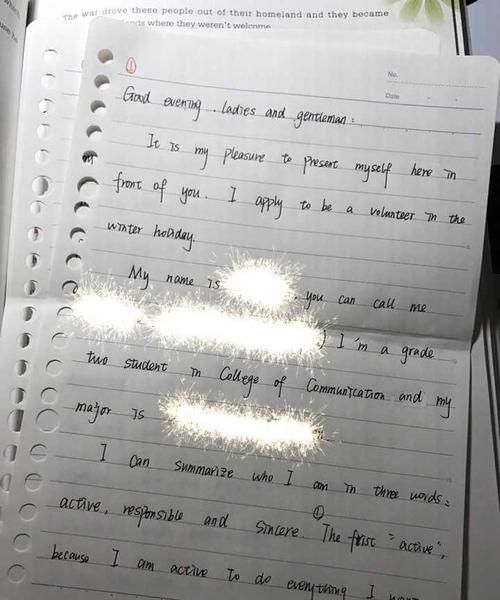 The war drove these people out of their homeland and they became
where they weren't welcome
①
No.
Date
Good evening, ladies and gentleman:
It is my pleasure to present myself here in
front of you. I apply to be a volunteer in the
winter holiday.
My name is , you can call me
) I'm a grade
two student in College of Communication and my
major is
I can summarize who I am in three words:
①
active, responsible and sincere. The first "active",
because I am active to do everything I